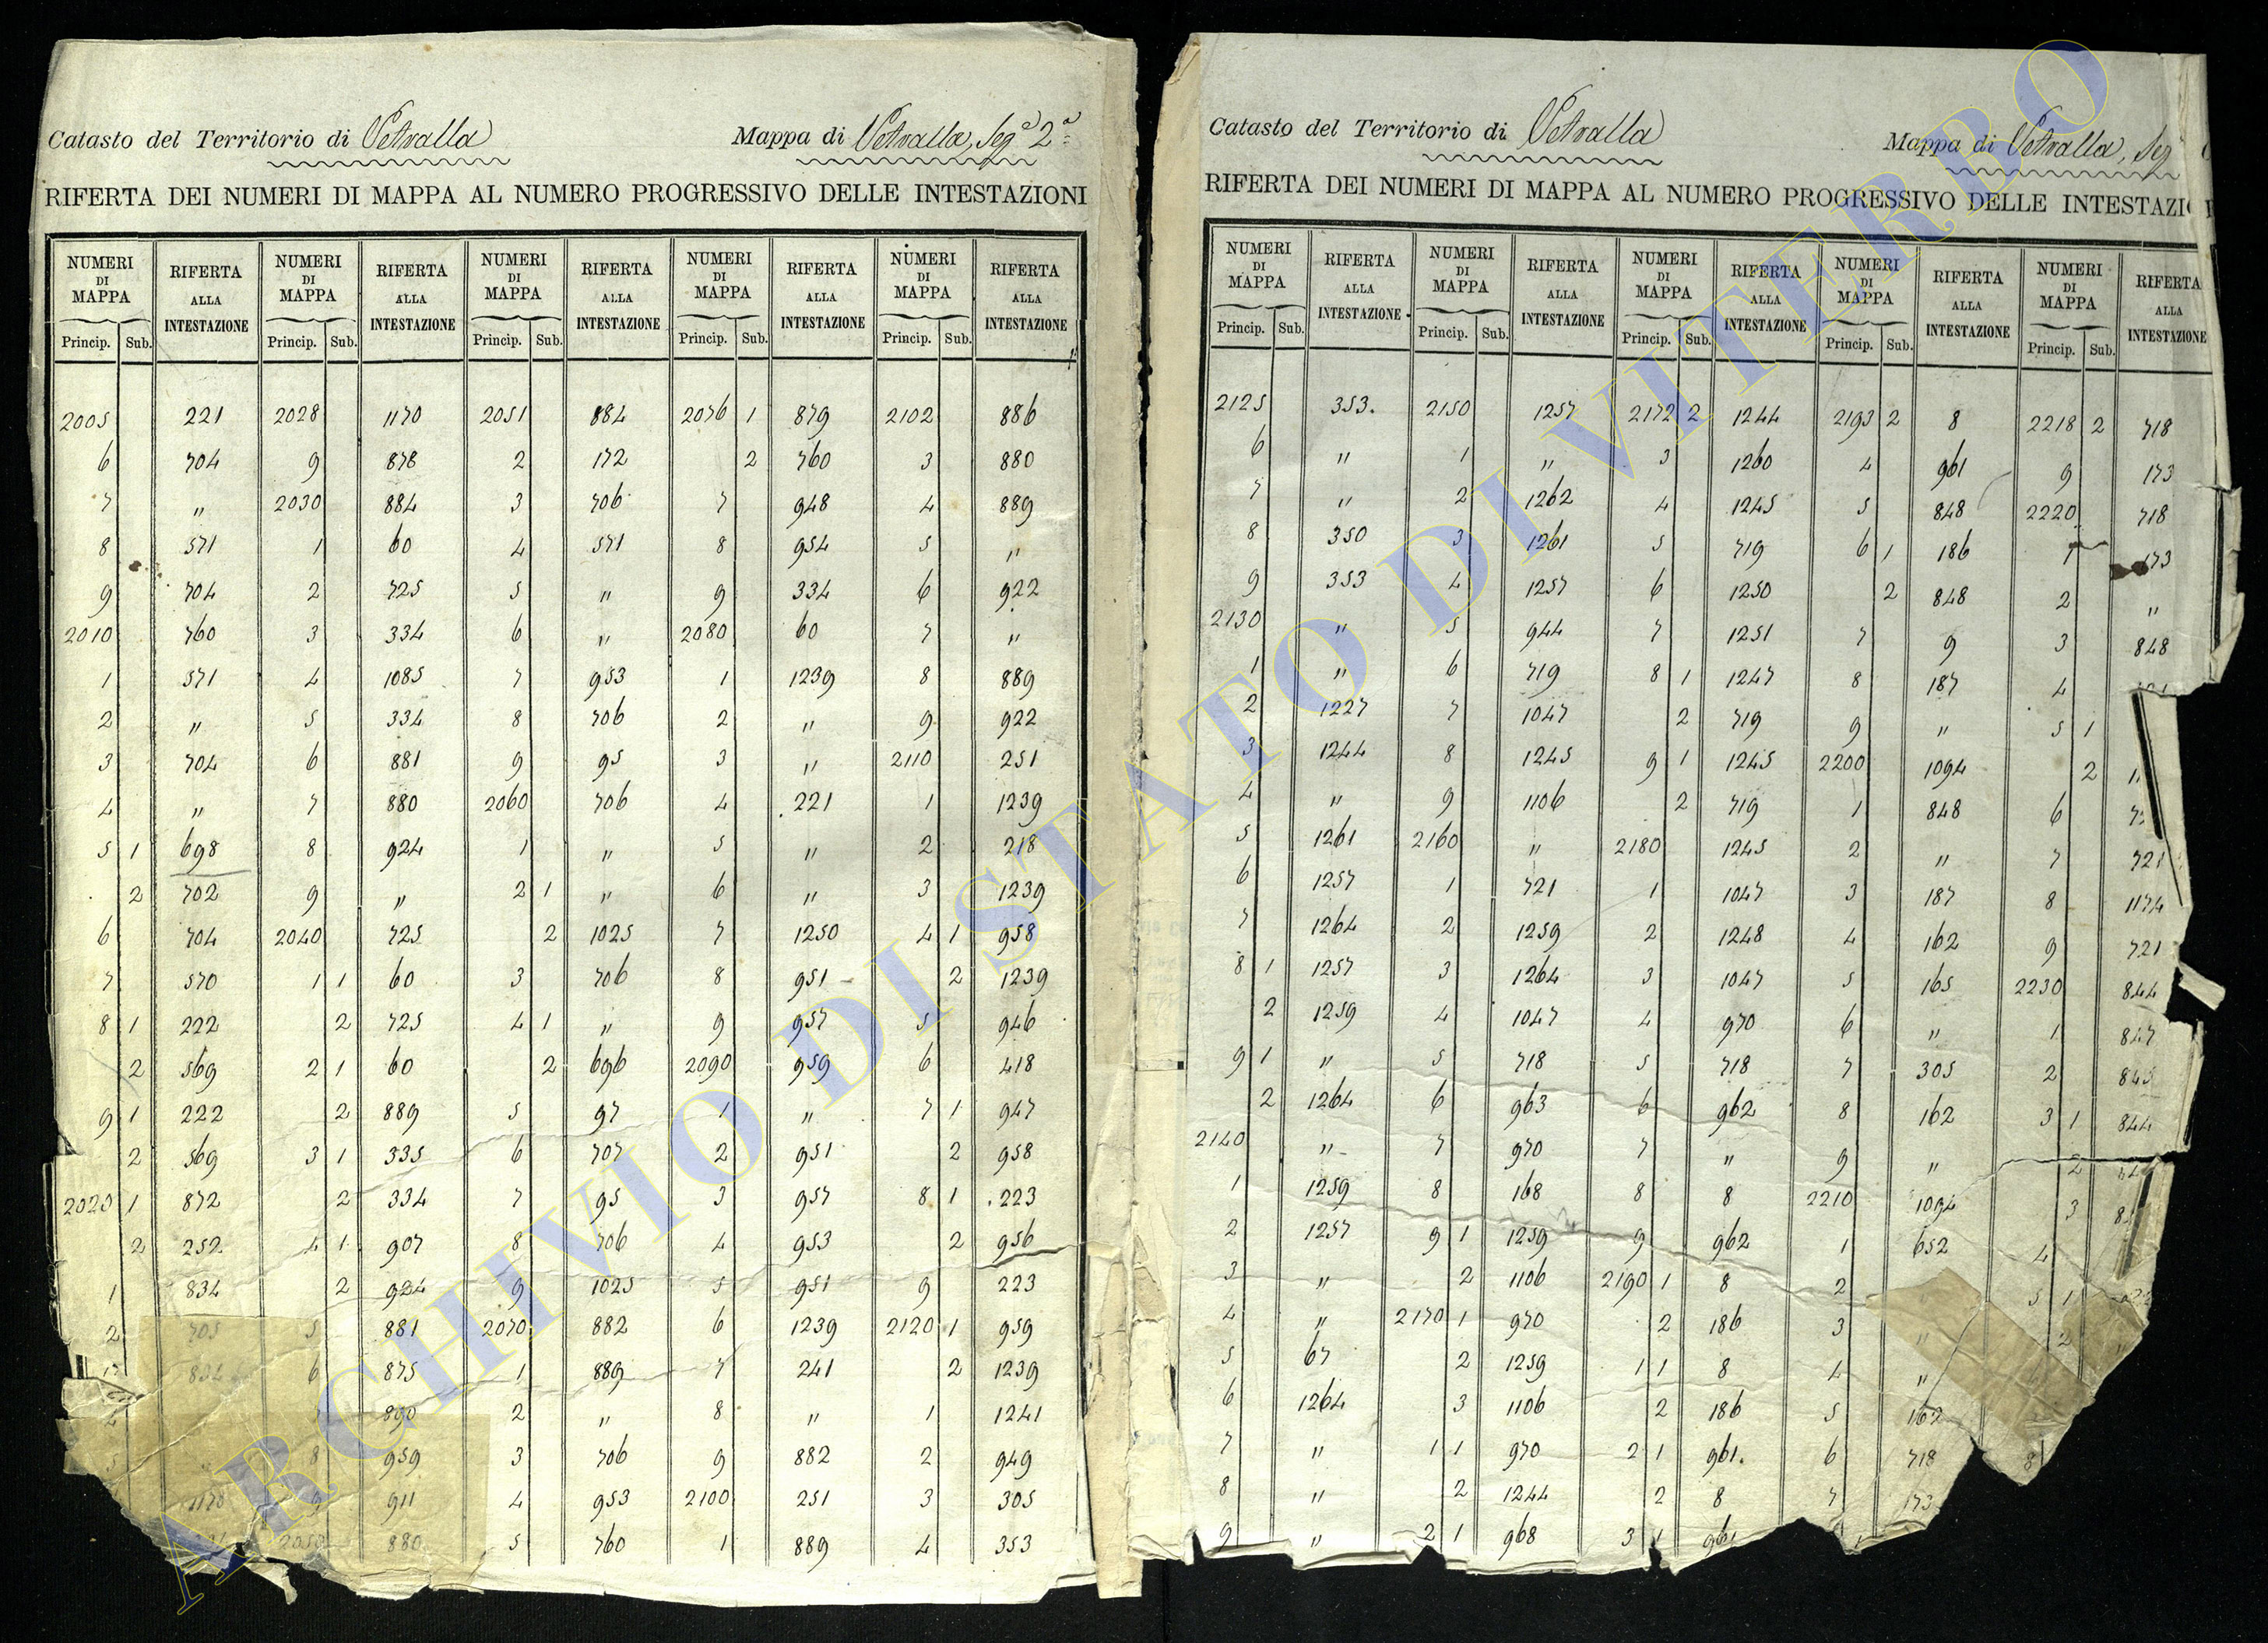 Catasto del Territorio di Vetralla Mappa di Vetralla, Sez.e 2a
RIFERTA DEI NUMERI DI MAPPA AL NUMERO PROGRESSIVO DELLE INTESTAZIONI
NUMERI DI MAPPA RIFERTA ALLA INTESTAZIONE NUMERI DI MAPPA RIFERTA ALLA INTESTAZIONE NUMERI DI MAPPA RIFERTA ALLA INTESTAZIONE NUMERI DI MAPPA RIFERTA ALLA INTESTAZIONE NUMERI DI MAPPA RIFERTA ALLA INTESTAZIONE
Princip. Sub. Princip. Sub. Princip. Sub. Princip. Sub. Princip. Sub.
2005 221 2028 1170 2051 884 2076 1 879 2102 886
6 704 9 878 2 172 2 760 3 880
7 " 2030 884 3 706 7 948 4 889
8 571 1 60 4 571 8 954 5 "
9 704 2 725 5 " 9 334 6 922
2010 760 3 334 6 " 2080 60 7 "
1 571 4 1085 7 953 1 1239 8 889
2 " 5 334 8 706 2 " 9 922
3 704 6 881 9 95 3 " 2110 251
4 " 7 880 2060 706 4 221 1 1239
5 1 698 8 924 1 " 5 " 2 218
2 702 9 " 2 1 " 6 " 3 1239
6 704 2040 725 2 1025 7 1250 4 1 958
7 570 1 1 60 3 706 8 951 2 1239
8 1 222 2 725 4 1 " 9 957 5 946
2 569 2 1 60 2 696 2090 959 6 418
9 1 222 2 889 5 97 1 " 7 1 947
2 569 3 1 335 6 707 2 951 2 958
2020 1 872 2 334 7 95 3 957 8 1 223
2 252 4 1 907 8 706 4 953 2 956
1 834 2 924 9 1025 5 951 9 223
2 705 5 881 2070 882 6 1239 2120 1 959
834 6 875 1 889 7 241 2 1239
890 2 " 8 " 1 1241
8 959 3 706 9 882 2 949
1170 9 911 4 953 2100 251 3 305
2050 880 5 760 1 889 4 353
Catasto del Territorio di Vetralla Mappa di Vetralla, Sez
RIFERTA DEI NUMERI DI MAPPA AL NUMERO PROGRESSIVO DELLE INTESTAZI
NUMERI DI MAPPA RIFERTA ALLA INTESTAZIONE NUMERI DI MAPPA RIFERTA ALLA INTESTAZIONE NUMERI DI MAPPA RIFERTA ALLA INTESTAZIONE NUMERI DI MAPPA RIFERTA ALLA INTESTAZIONE NUMERI DI MAPPA RIFERTA ALLA INTESTAZIONE
Princip. Sub. Princip. Sub. Princip. Sub. Princip. Sub. Princip. Sub.
2125 353. 2150 1257 2172 2 1244 2193 2 8 2218 2 718
6 " 1 " 3 1260 4 961 9 173
7 " 2 1262 4 1245 5 848 2220 718
8 350 3 1261 5 719 6 1 186 1 173
9 353 4 1257 6 1250 2 848 2 "
2130 " 5 944 7 1251 7 9 3 848
1 " 6 719 8 1 1247 8 187 4
2 1227 7 1047 2 719 9 " 5 1
3 1244 8 1245 9 1 1245 2200 1094 2
4 " 9 1106 2 719 1 848 6
5 1261 2160 " 2180 1245 2 " 7 721
6 1257 1 721 1 1047 3 187 8 1174
7 1264 2 1259 2 1248 4 162 9 721
8 1 1257 3 1264 3 1047 5 165 2230 844
2 1259 4 1047 4 970 6 " 1 847
9 1 " 5 718 5 718 7 305 2 845
2 1264 6 963 6 962 8 162 3 1 844
2140 " 7 970 7 " 9 " 2
1 1259 8 168 8 8 2210 1094 3
2 1257 9 1 1259 9 962 1 652 4
3 " 2 1106 2190 1 8 2 5 1
4 " 2170 1 970 2 186 3 " 2
5 67 2 1259 1 1 8 4 "
6 1264 3 1106 2 186 5 162
7 " 1 1 970 2 1 961. 6 718 8
8 " 2 1244 2 8 7 173
9 " 2 1 968 3 1 961
ARCHIVIO DI STATO DI VITERBO